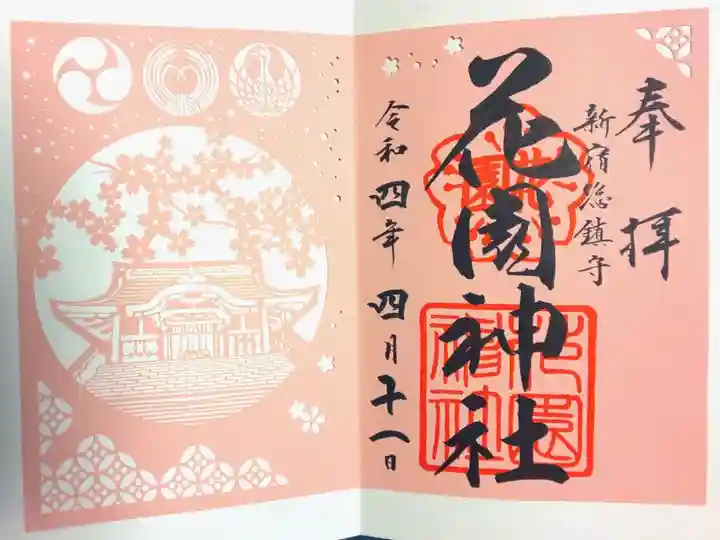 奉拝
新宿総鎮守
花園神社
令和四年四月十八日
花園
花園神社